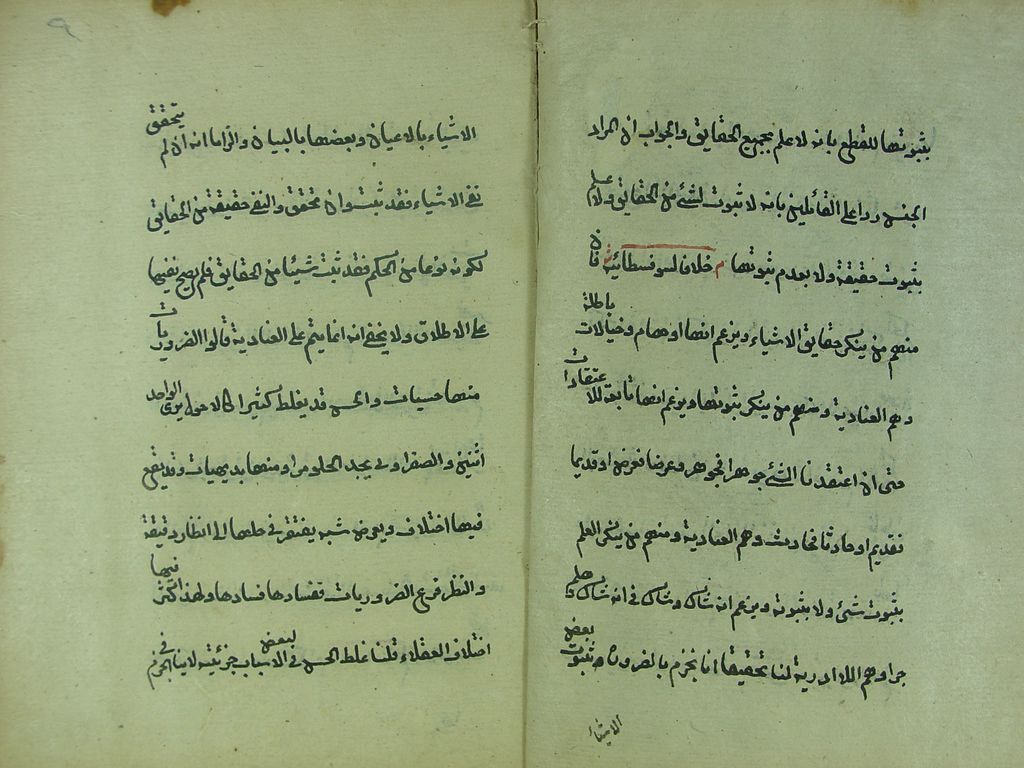 بثبوتها للقطع بانه لا علم بجميع الحقايق والجواب ان المراد
الجنس ردا على القائلين بانه لا ثبوت لشئ من الحقايق ولا علم
بثبوت حقيقة ولا بعدم ثبوتها م خلافا لسوفسطائية ش فان
منهم من ينكر حقايق الاشياء ويزعم انها اوهام وخيالات باطلة
وهم العنادية ومنهم من ينكر ثبوتها ويزعم انها تابعة للاعتقادات
حتى ان اعتقدنا الشئ جوهرا فجوهر وعرضا فعرض او قديما
فقديم او حادثا فحادث وهم العنادية ومنهم من ينكر العلم
بثبوت شئ ولا بثبوته ويزعم انه شاك وشاك في انه شاك وهلم
جرا وهم اللاادرية لنا تحقيقا انا نجزم بالضرورة ثبوت بعض
الاشياء
٩
الاشياء بالاعيان وبعضها بالبيان والزاما انه ان لم يتحقق
نفي الاشياء فقد ثبت وان تحقق والنفي حقيقة من الحقايق
لكونه نوعا من الحكم فقد ثبت شيئا من الحقايق فلم يصح نفيها
على الاطلاق ولا يخفى انه انما يتم على العنادية قالوا الضروريات
منها حسيات والحس قد يغلط كثيرا كالاحول يرى الواحد
اثنين والصفراوي يجد الحلو مرا ومنها بديهيات وقد يقع
فيها اختلاف ويعرض شبه يفتقر في حلها الى انظار دقيقة
والنظر فرع الضروريات ففسادها فسادها ولهذا كثر فيها
اختلاف العقلاء قلنا غلط الحس في لبعض الاسباب جزئية لا ينافي الجزم